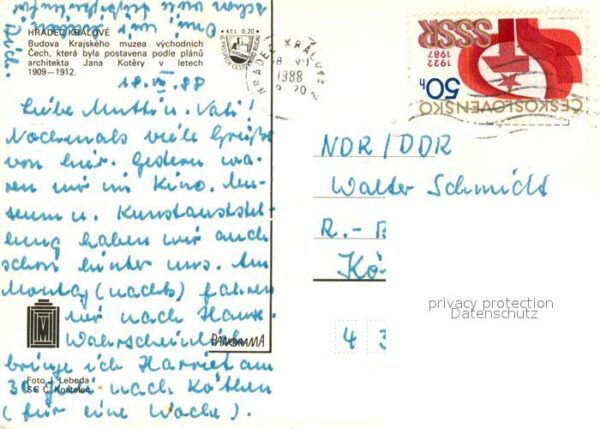 HRADEC KRÁLOVÉ
Budova Krajského muzea východních
Čech, která byla postavena podle plánů
architekta Jana Kotěry v letech
1909–1912.
Kčs 0,20
18. VII. 88
Liebe Mutti u. Vati!
Nochmals viele Grüße
von hier. Gestern wa-
ren wir im Kino. Mu-
seum u. Kunstausstel-
lung haben wir auch
schon hinter uns. Am
Montag (nachts) fahren
wir nach Hause.
Wahrscheinlich
bringe ich Harriet am
30. nach Köthen
(für eine Woche).
Foto J. Lebeda
SG Č. Kostelec
PANORAMA
HRADEC KRÁLOVÉ
1988
SSSR
1922
1987
50h
ČESKOSLOVENSKO
NDR/DDR
Walter Schmidt
R.-B
Kö
4 3
privacy protection
Datenschutz